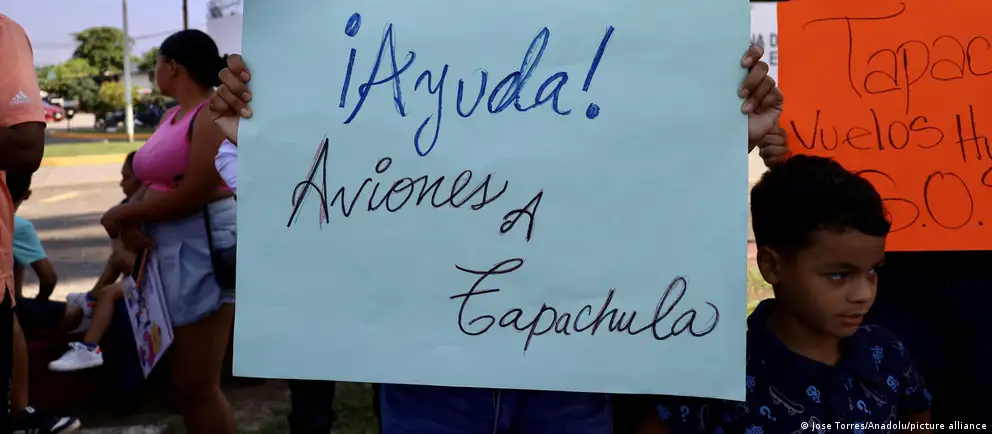 ¡Ayuda!
Aviones A
Tapachula
Vuelos
S.O.
adidas
© Jose Torres/Anadolu/picture alliance